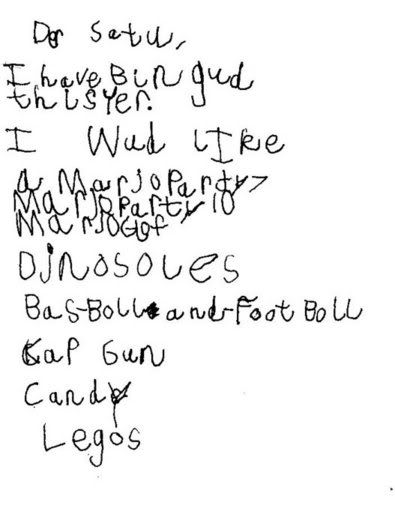 Der Satu,
I have Bin gud
this yer.
I Wud LIKe
a MarjoParty 7
MarjoParty 10
MarjoGof
DJNOSOLES
Bas-Boll and-Foot Boll
Kap Gun
Candy
Legos